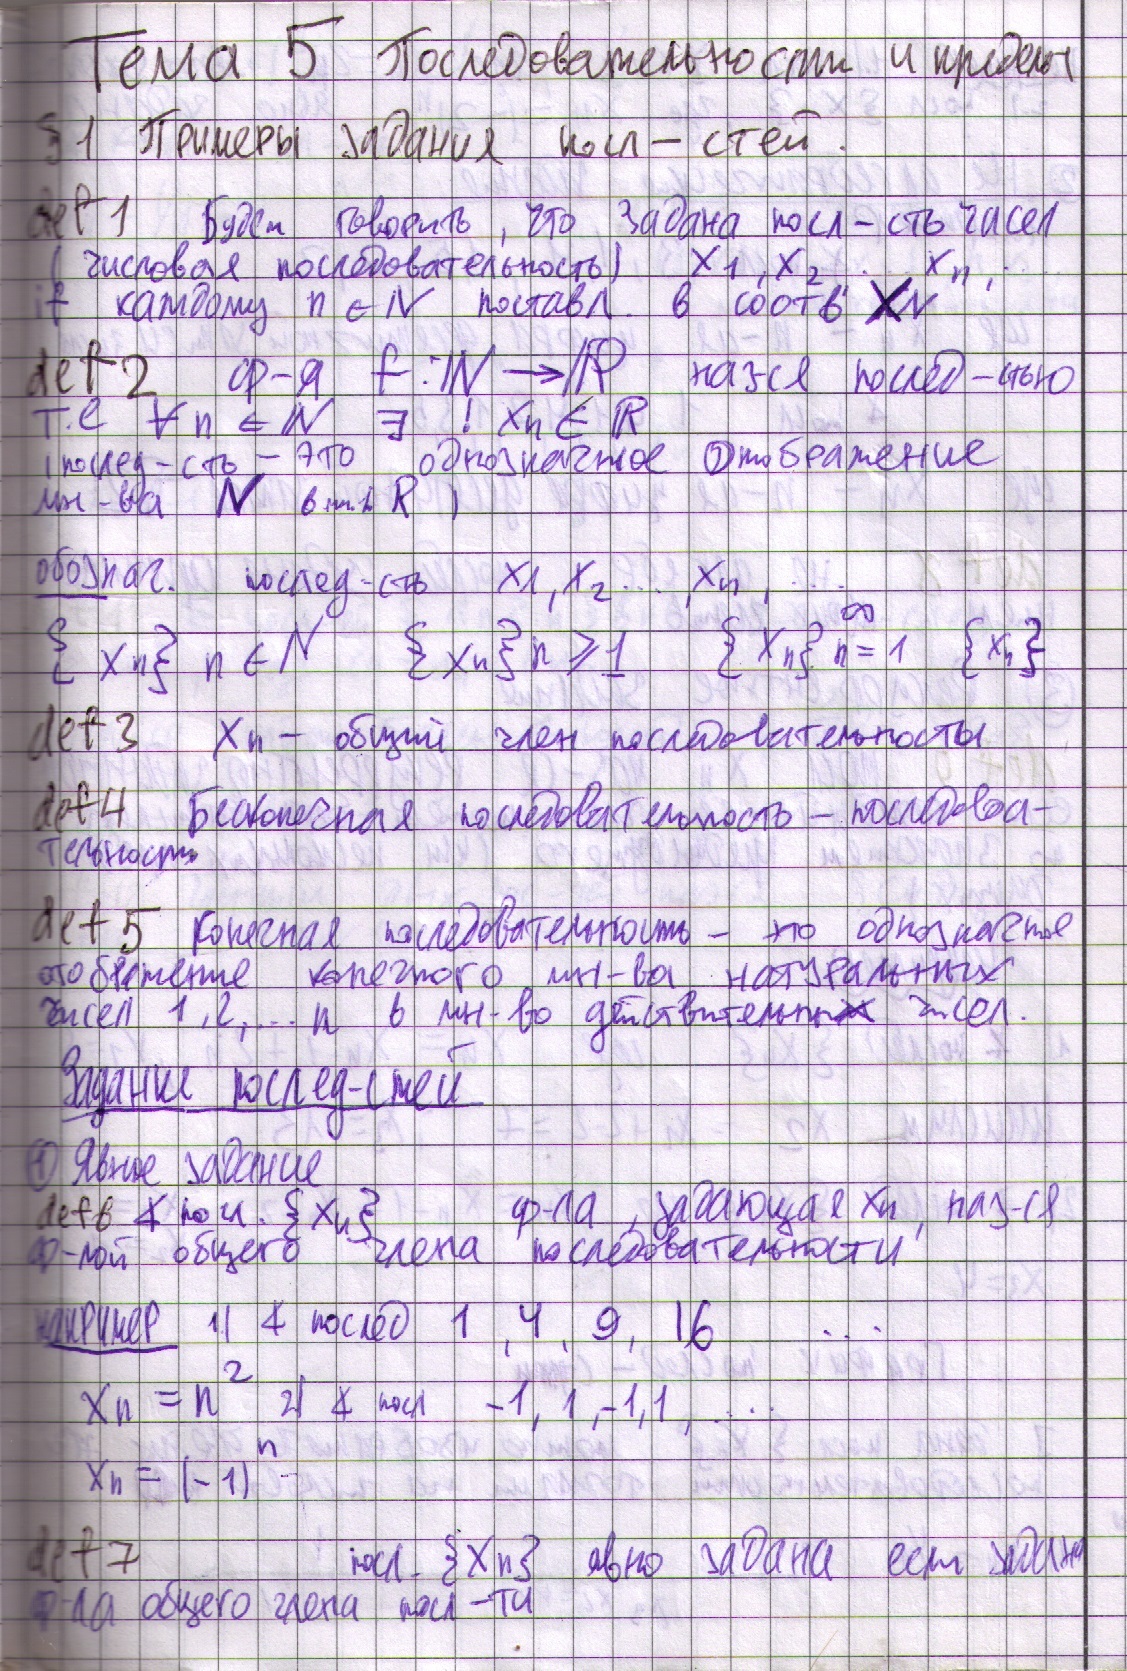 Тема 5 Последовательности и пределы
§1 Примеры задания посл-стей.
def 1 Будем говорить, что задана посл-сть чисел
(числовая последовательность) x1, x2 ..., xn, ...
if каждому n ∈ N поставл. в соотв XN
def 2 ф-я f: N → R наз-ся послед-стью
т.е ∀ n ∈ N ∃ ! xn ∈ R
(послед-сть – это однозначное отображение
мн-ва N в мн. R)
обознач. послед-сть x1, x2 ..., xn, ...
{xn} n ∈ N {xn} n ⩾ 1 {xn} n=1 ∞ {xn}
def 3 xn – общий член последовательности
def 4 Бесконечная последовательность – последова-
тельность
def 5 Конечная последовательность – это однозначное
отображение конечного мн-ва натуральных
чисел 1, 2, ... n в мн-во действительных чисел.
Задание послед-стей
① Явное задание
def 6 ∢ посл. {xn} ф-ла, задающая xn, наз-ся
ф-лой общего члена последовательности
например 1) ∢ послед 1, 4, 9, 16 ...
xn = n² 2) ∢ посл -1, 1, -1, 1, ...
xn = (-1)ⁿ
def 7 посл. {xn} явно задана есл задана
ф-ла общего члена посл-ти